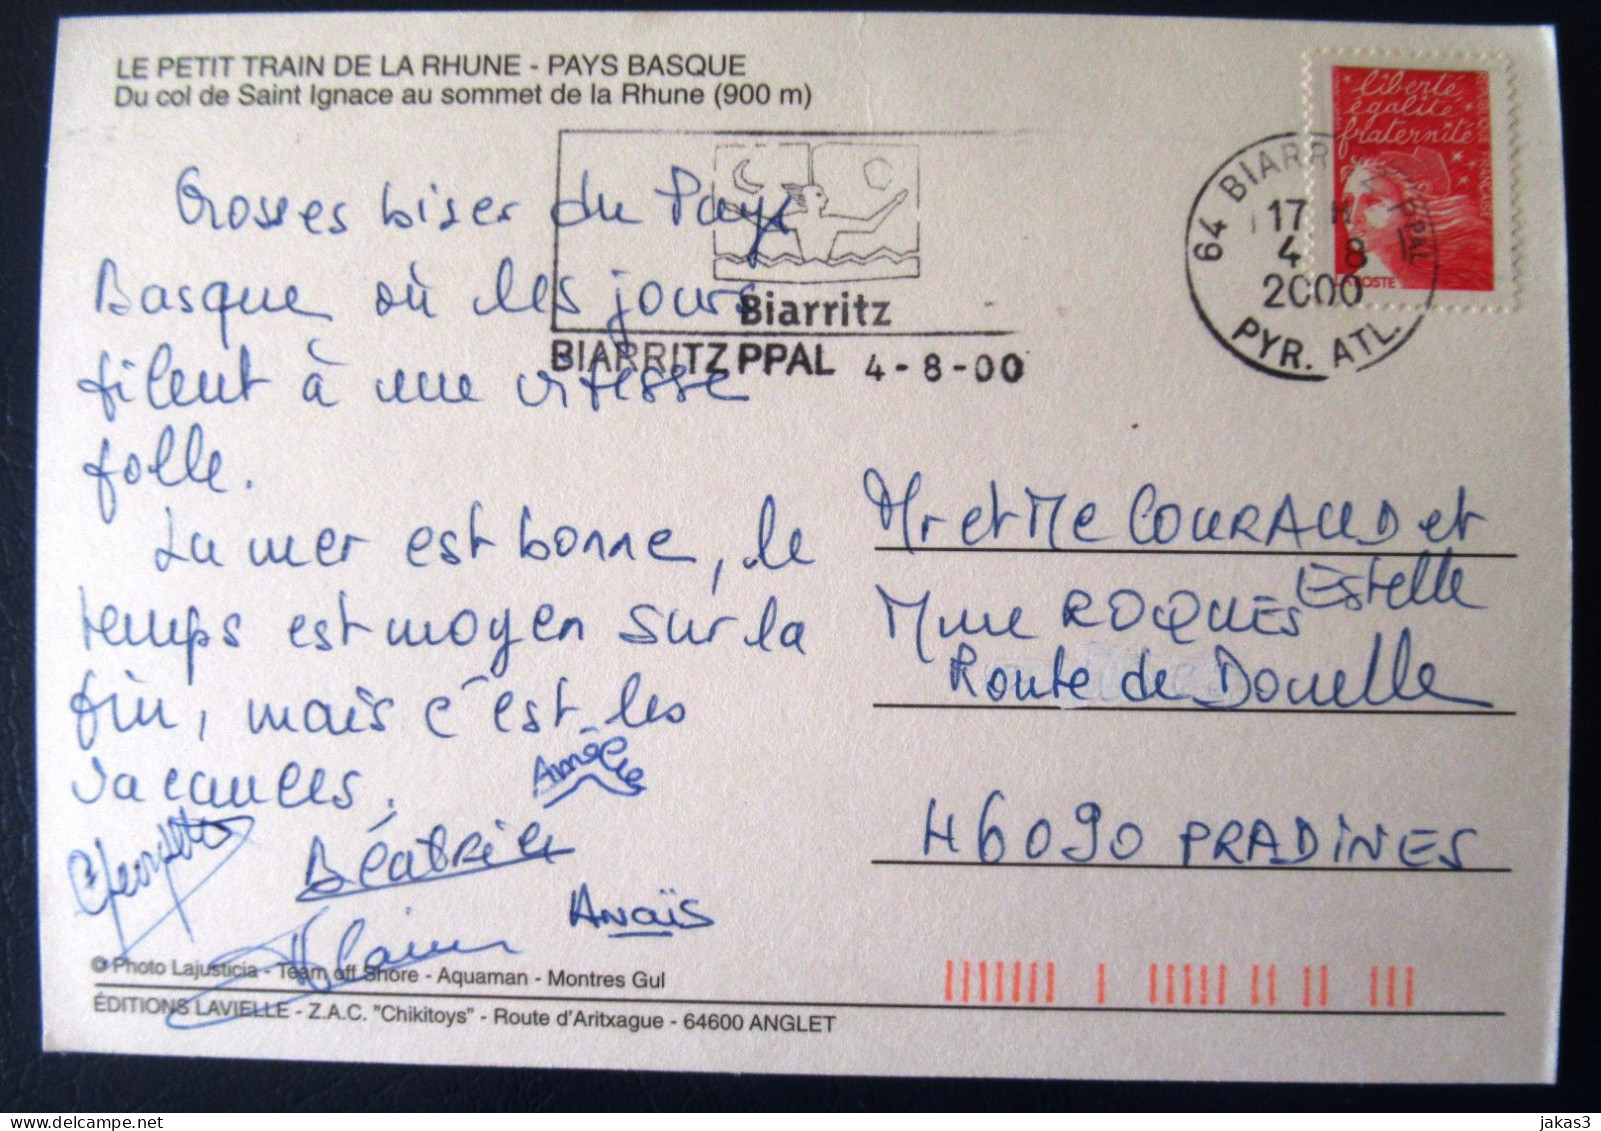 LE PETIT TRAIN DE LA RHUNE - PAYS BASQUE
Du col de Saint Ignace au sommet de la Rhune (900 m)
liberté
égalité
fraternité
RÉPUBLIQUE FRANÇAISE
LA POSTE
64 BIARRITZ PPAL
17 H
4 8
2000
PYR. ATL.
Biarritz
BIARRITZ PPAL 4-8-00
Grosses bises du Pays
Basque où les jours
filent à une vitesse
folle.
La mer est bonne, le
temps est moyen sur la
fin, mais c'est les
vacances.
Amélie
Béatrice
Anaïs
Alain
Mr et Me COURAUD et
Estelle
Mme ROQUES
Route de Douelle
46090 PRADINES
© Photo Lajusticia - Team off Shore - Aquaman - Montres Gul
ÉDITIONS LAVIELLE - Z.A.C. "Chikitoys" - Route d'Aritxague - 64600 ANGLET
jakas3